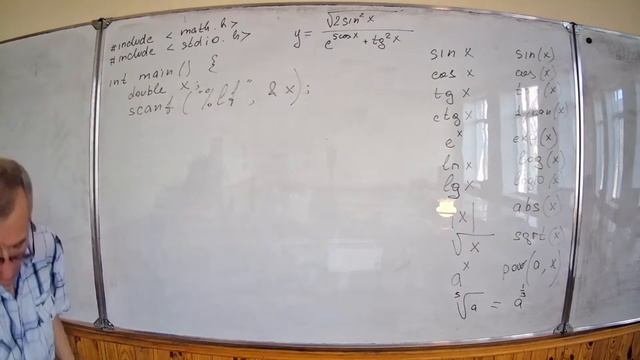 #include <math.h>
#include <stdio.h>
int main() {
double x;
scanf("%lf", &x);
y = √2sin²x / e^5cosx + tg²x
sin x sin(x)
cos x cos(x)
tg x (x)
ctg x (x)
e^x exp(x)
ln x log(x)
lg x
|x| abs(x)
√x sqrt(x)
a^x pow( , x)